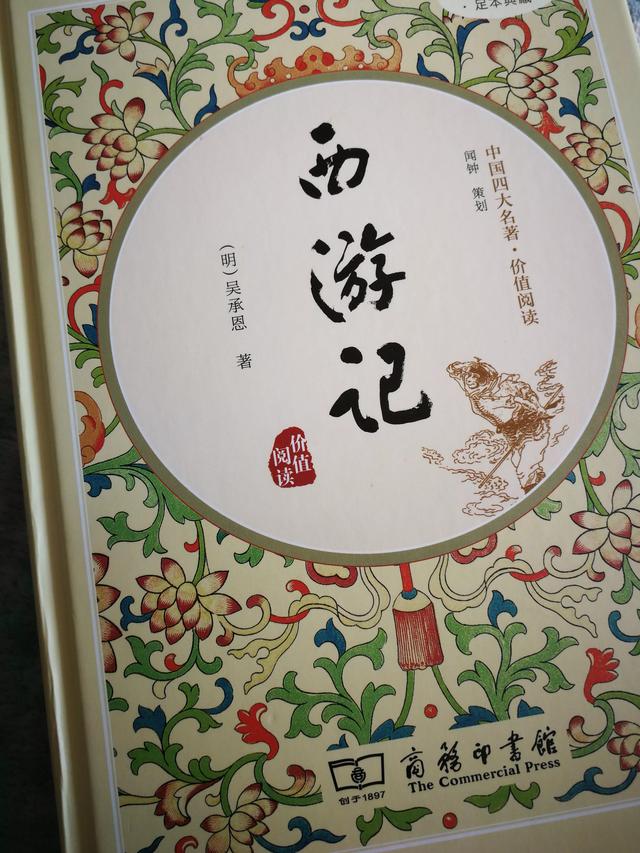 ·足本典藏
西游记
中国四大名著·价值阅读
闻钟 策划
(明)吴承恩 著
价值
阅读
商務印書館
The Commercial Press
创于1897